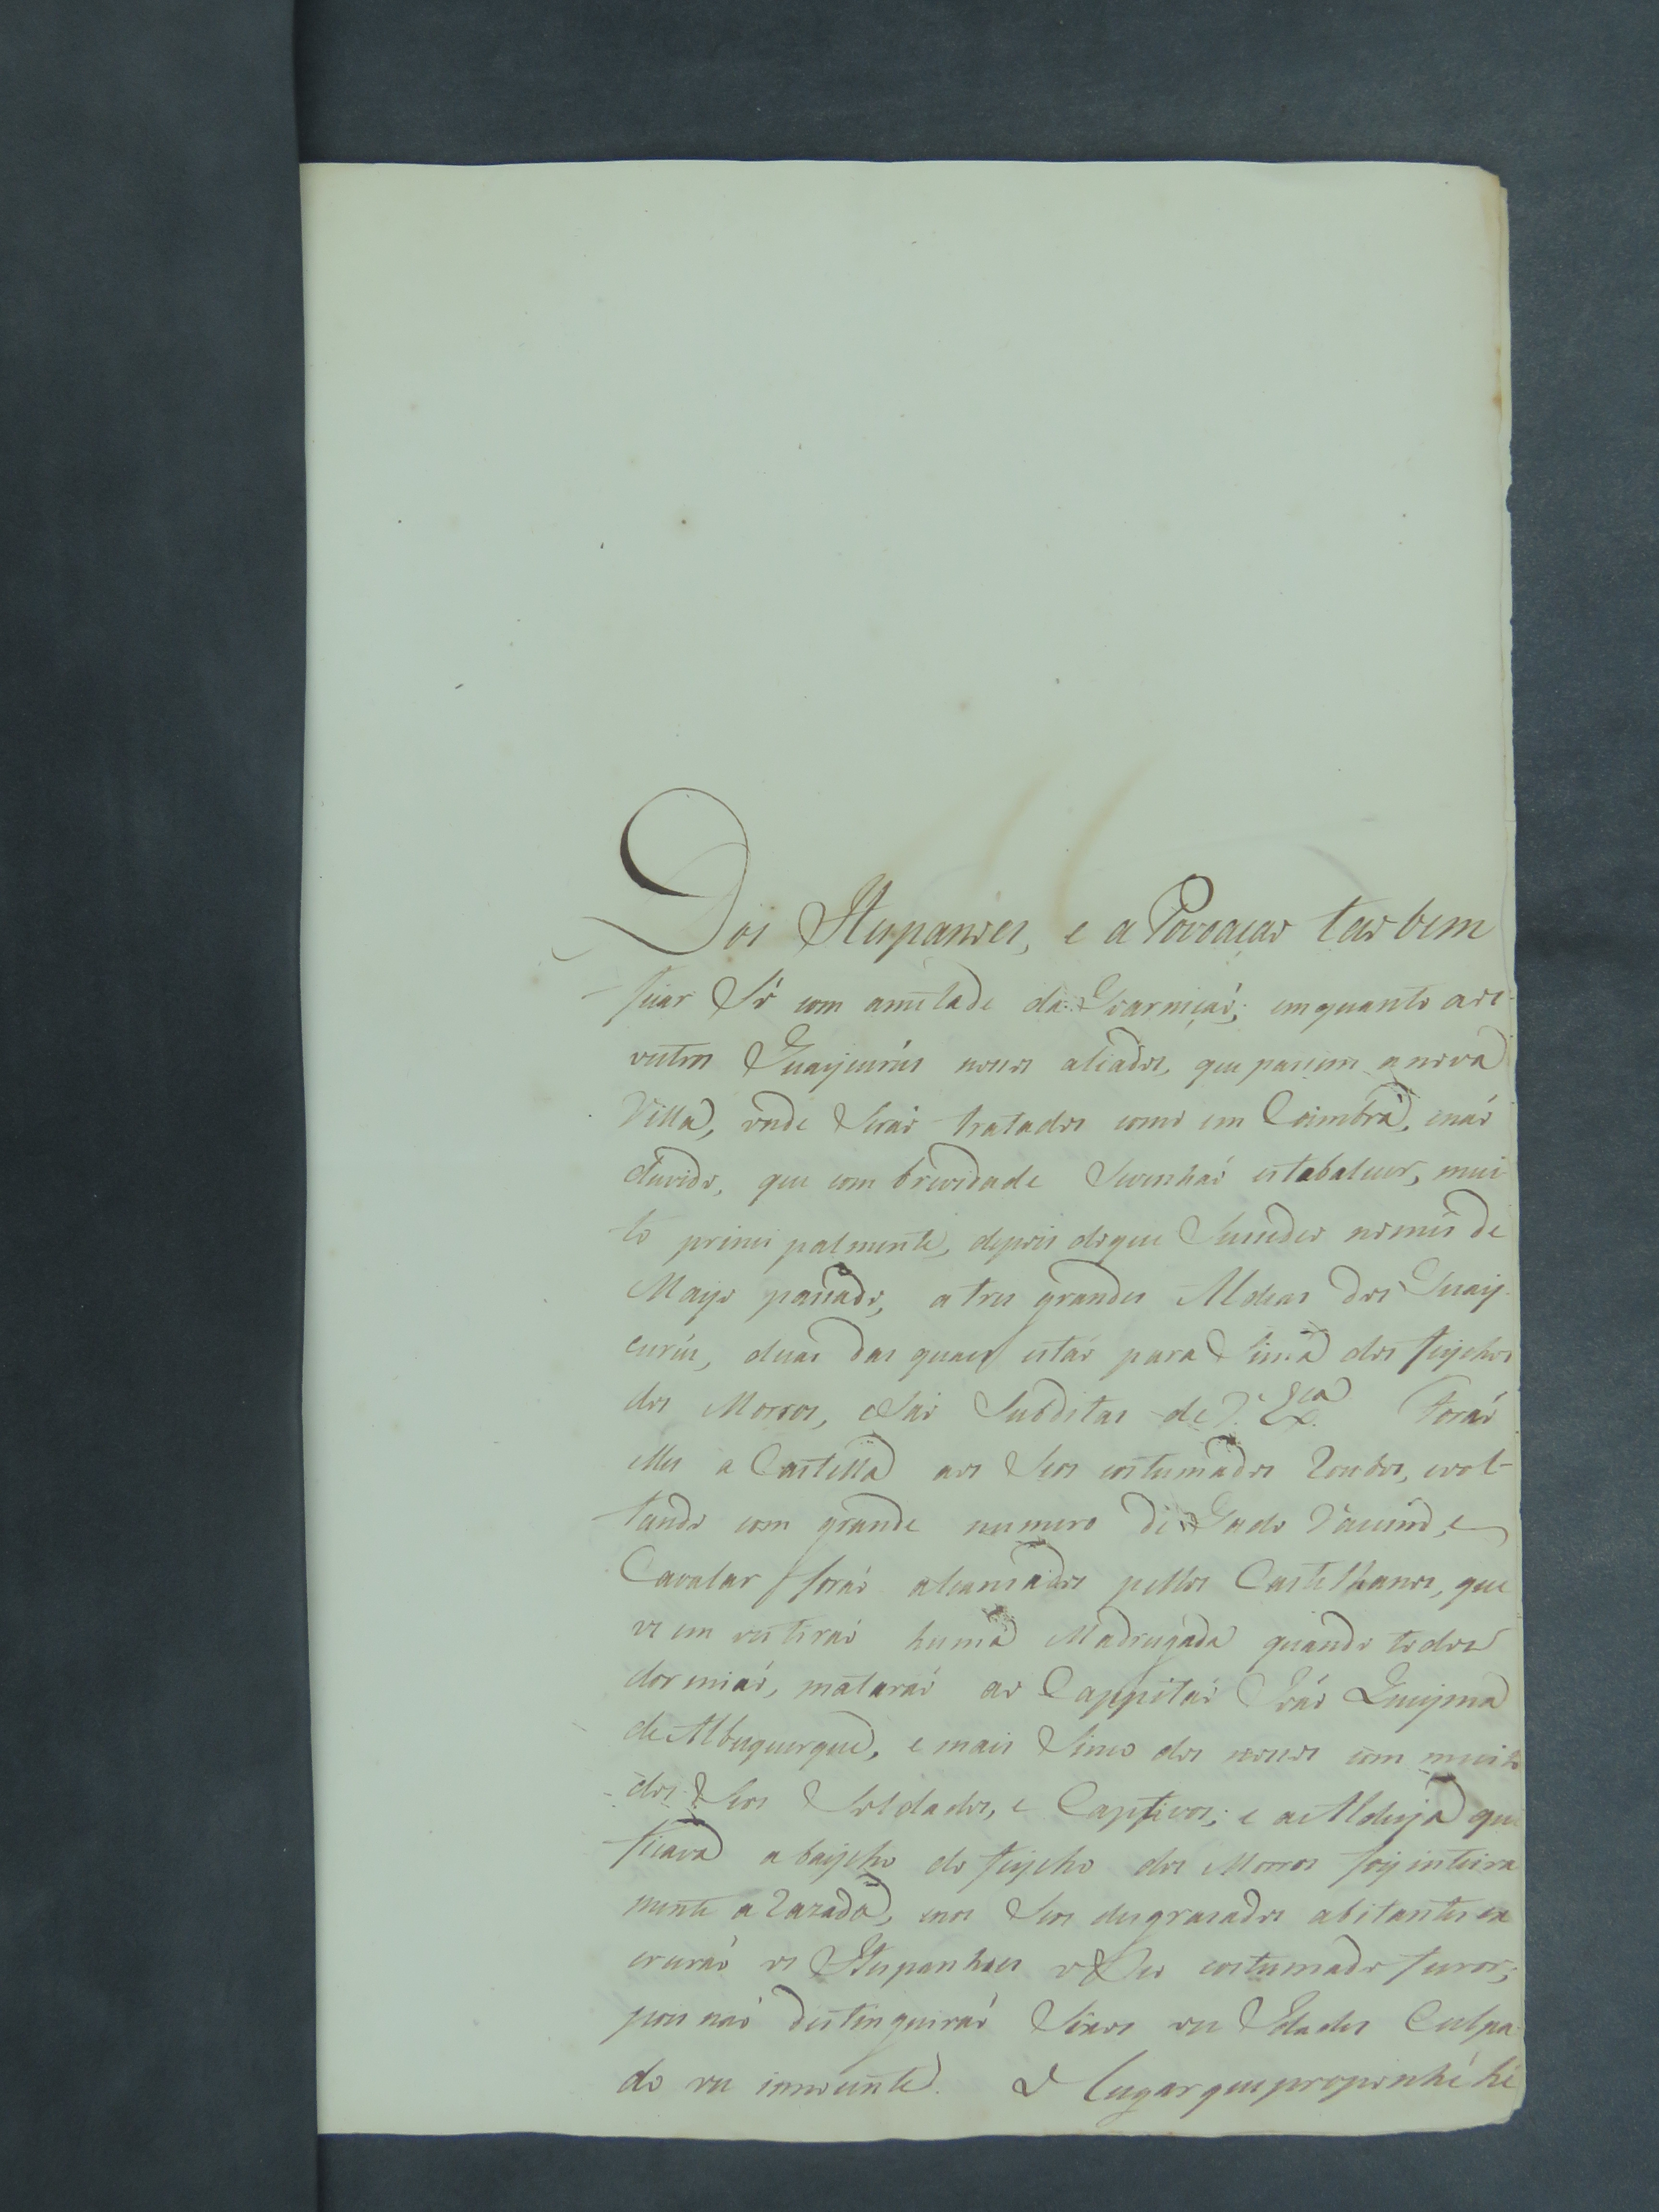 Dos Hespanoes, e a Povoacao taobem
ficar Só com ametade da Goarniçaó; emquanto aos
outros Guaycurús nosos aliados, que pasem a nova
Villa, onde Seraó tratados como em Coimbra, enaó
duvido, que com brevidade Sevenhaó estabalecer, mui
to princi palmente, depois doque Susedeo nomes de
Mayo pasado, a tres grandes Aldeas dos Guay
curús, duas das quaes estaó para Sima dos feychos
dos Morros, eSaó Subditas de V. Ex.ca Foraó
elles a Castella aos Seos costumados Roubos, evol
tando com grande numero de Gado Vacum, e
Cavalar foraó alcansados pellos Castelhanos, que
os em vistiraó huma Madrugada quando todos
dormiaó, mataraó ao Cappitaó Joaó Queyma
de Albuquerque, e mais Sinco dos nosos com muito
dos Seos Soldados, e Captivos; e a Aldeya que
ficava abaycho do feycho dos Morros foy inteira
mente a Razada, enos Seos desgrasados abitantes ex
erceraó os Hespanhoes oSeo costumado furor;
pois naó destinguiraó Sexos ou Idades Culpa
do ou innocente. O Lugar que proponhé hé